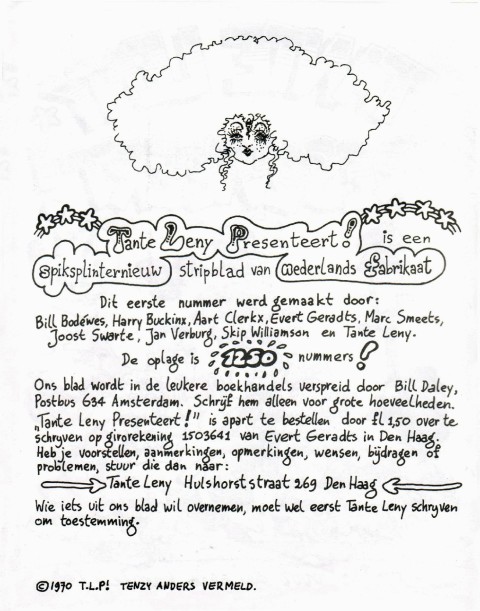 Tante Leny Presenteert! is een
Spiksplinternieuw stripblad van Nederlands Fabrikaat
Dit eerste nummer werd gemaakt door:
Bill Bodéwes, Harry Buckinx, Aart Clerkx, Evert Geradts, Marc Smeets,
Joost Swarte, Jan Verburg, Skip Williamson en Tante Leny.
De oplage is 1250 nummers!?
Ons blad wordt in de leukere boekhandels verspreid door Bill Daley,
Postbus 634 Amsterdam. Schrijf hem alleen voor grote hoeveelheden.
"Tante Leny Presenteert!" is apart te bestellen door fl 1,50 over te
schryven op girorekening 1503641 van Evert Geradts in Den Haag.
Heb je voorstellen, aanmerkingen, opmerkingen, wensen, bijdragen of
problemen, stuur die dan naar:
Tante Leny Hulshorststraat 269 Den Haag
Wie iets uit ons blad wil overnemen, moet wel eerst Tante Leny schryven
om toestemming.
©1970 T.L.P! TENZY ANDERS VERMELD.